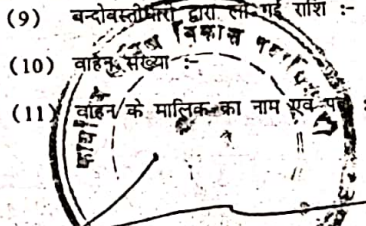 (9) बन्दोवस्तीधारी द्वारा ली गई राशि :-
(10) वाहन संख्या :-
(11) वाहन के मालिक का नाम एवं :
विकास